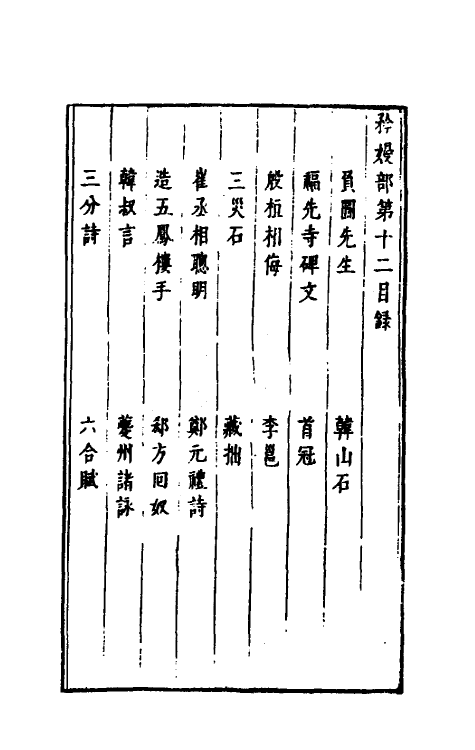 矜嫚部第十二目錄
員圓先生　韓山石
福先寺碑文　首冠
殷桓相侮　李邕
三災石　藏拙
崔丞相聰明　鄭元禮詩
造五鳳樓手　郄方回奴
韓叔言　夔州諸詠
三分詩　六合賦